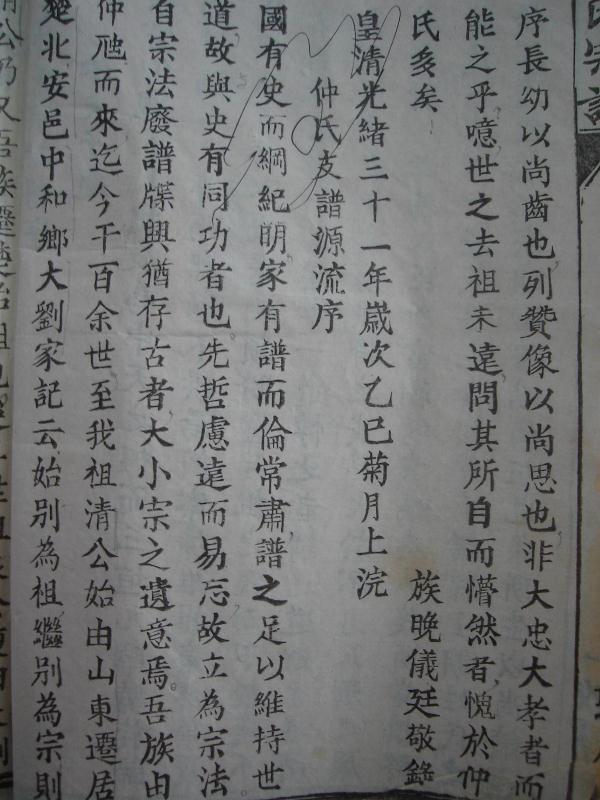 氏宗譜
序長幼以尚齒也列贊像以尚思也非大忠大孝者而
能之乎噫世之去祖未遠問其所自而懵然者愧於仲
氏多矣
族晚儀廷敬錄
皇清光緒三十一年歲次乙巳菊月上浣
仲氏支譜源流序
國有史而綱紀明家有譜而倫常肅譜之足以維持世
道故與史有同功者也先哲慮遠而易忘故立為宗法
自宗法廢譜牒興猶存古者大小宗之遺意焉吾族由
仲虺而來迄今千百余世至我祖清公始由山東遷居
楚北安邑中和鄉大劉家記云始別為祖繼別為宗則
公乃又吾族遷楚始祖也